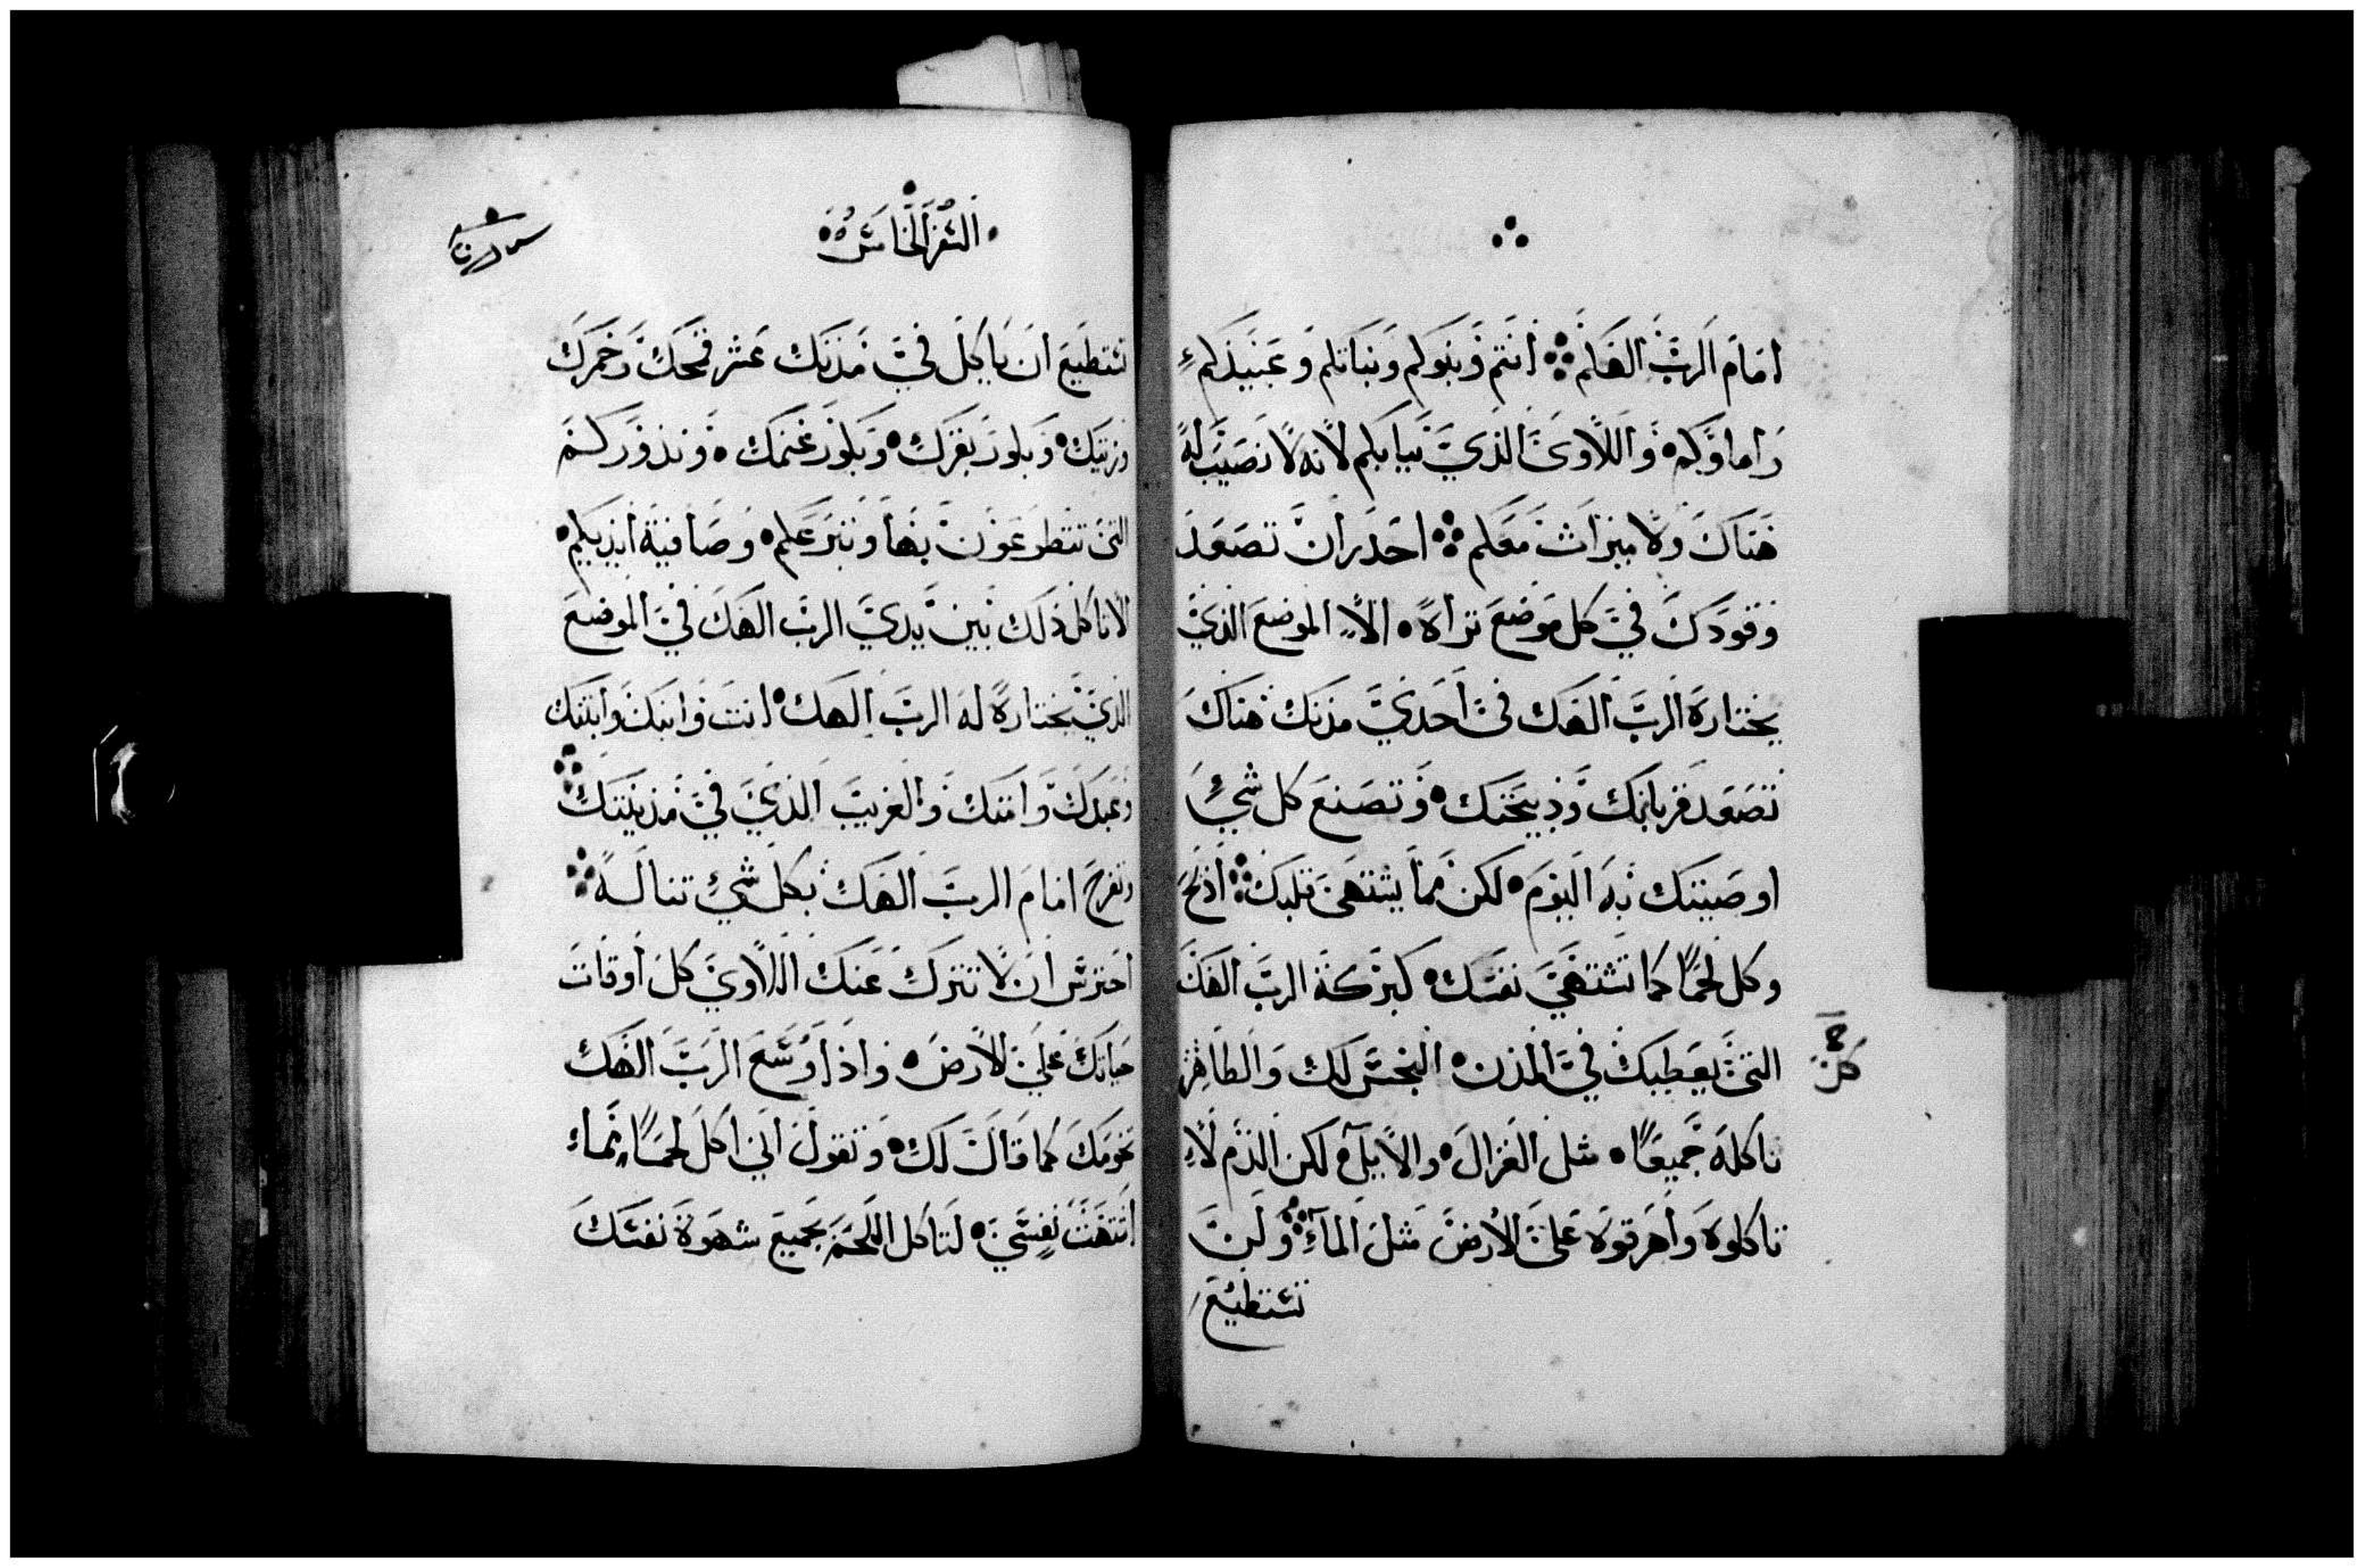 امام الرب الهكم انتم وبنوكم وبناتكم وعبيدكم
واماوكم واللاوي الذي بيابكم لانه لا نصيب له
هناك ولا ميراث معكم احدر ان تصعد
وقودك في كل موضع تراه الا الموضع الذي
يختاره الرب الهك في احدي مدنك هناك
تصعد قربانك وذبيحتك وتصنع كل شيء
اوصيتك به اليوم لكن مما يشتهي قلبك اذبح
وكل لحما كما تشتهي نفسك كبركة الرب الهك
التي يعطيك في المدن النجس لك والطاهر
تاكله جميعا مثل الغزال والايل لكن الدم لا
تاكلوه واهرقوه علي الارض مثل المآء ولن
تستطيع
السفر الخامس
تستطيع ان تاكل في مدنك عشر قمحك وخمرك
وزيتك وبكور بقرك وبكور غنمك ونذوركم
التي تتطوعون بها وتبرعكم وصافية ايديكم
لا تاكل ذلك بين يدي الرب الهك في الموضع
الذي يختاره له الرب الهك انت وابنك وابنتك
وعبدك وامتك والغريب الذي في مدينتك
وتفرح امام الرب الهك بكل شيء تناله
احترس ان لا تترك عنك اللاوي كل اوقات
حياتك علي الارض واذا اوسع الرب الهك
تخومك كما قال لك وتقول اني اكل لحما مما
اشتهت نفسي لتاكل اللحم بجميع شهوة نفسك